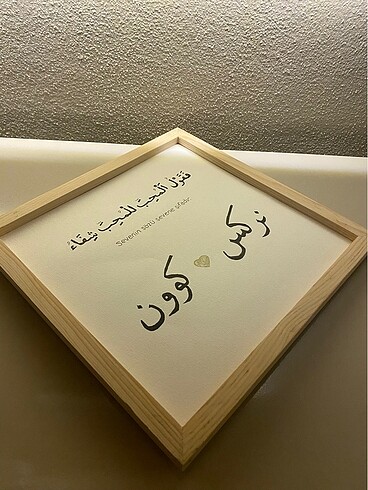 قَوْلُ الْمُحِبِّ لِلْمُحِبِّ شِفَاءٌ
Sevenin sözü sevene şifadır.
نركس
كوون